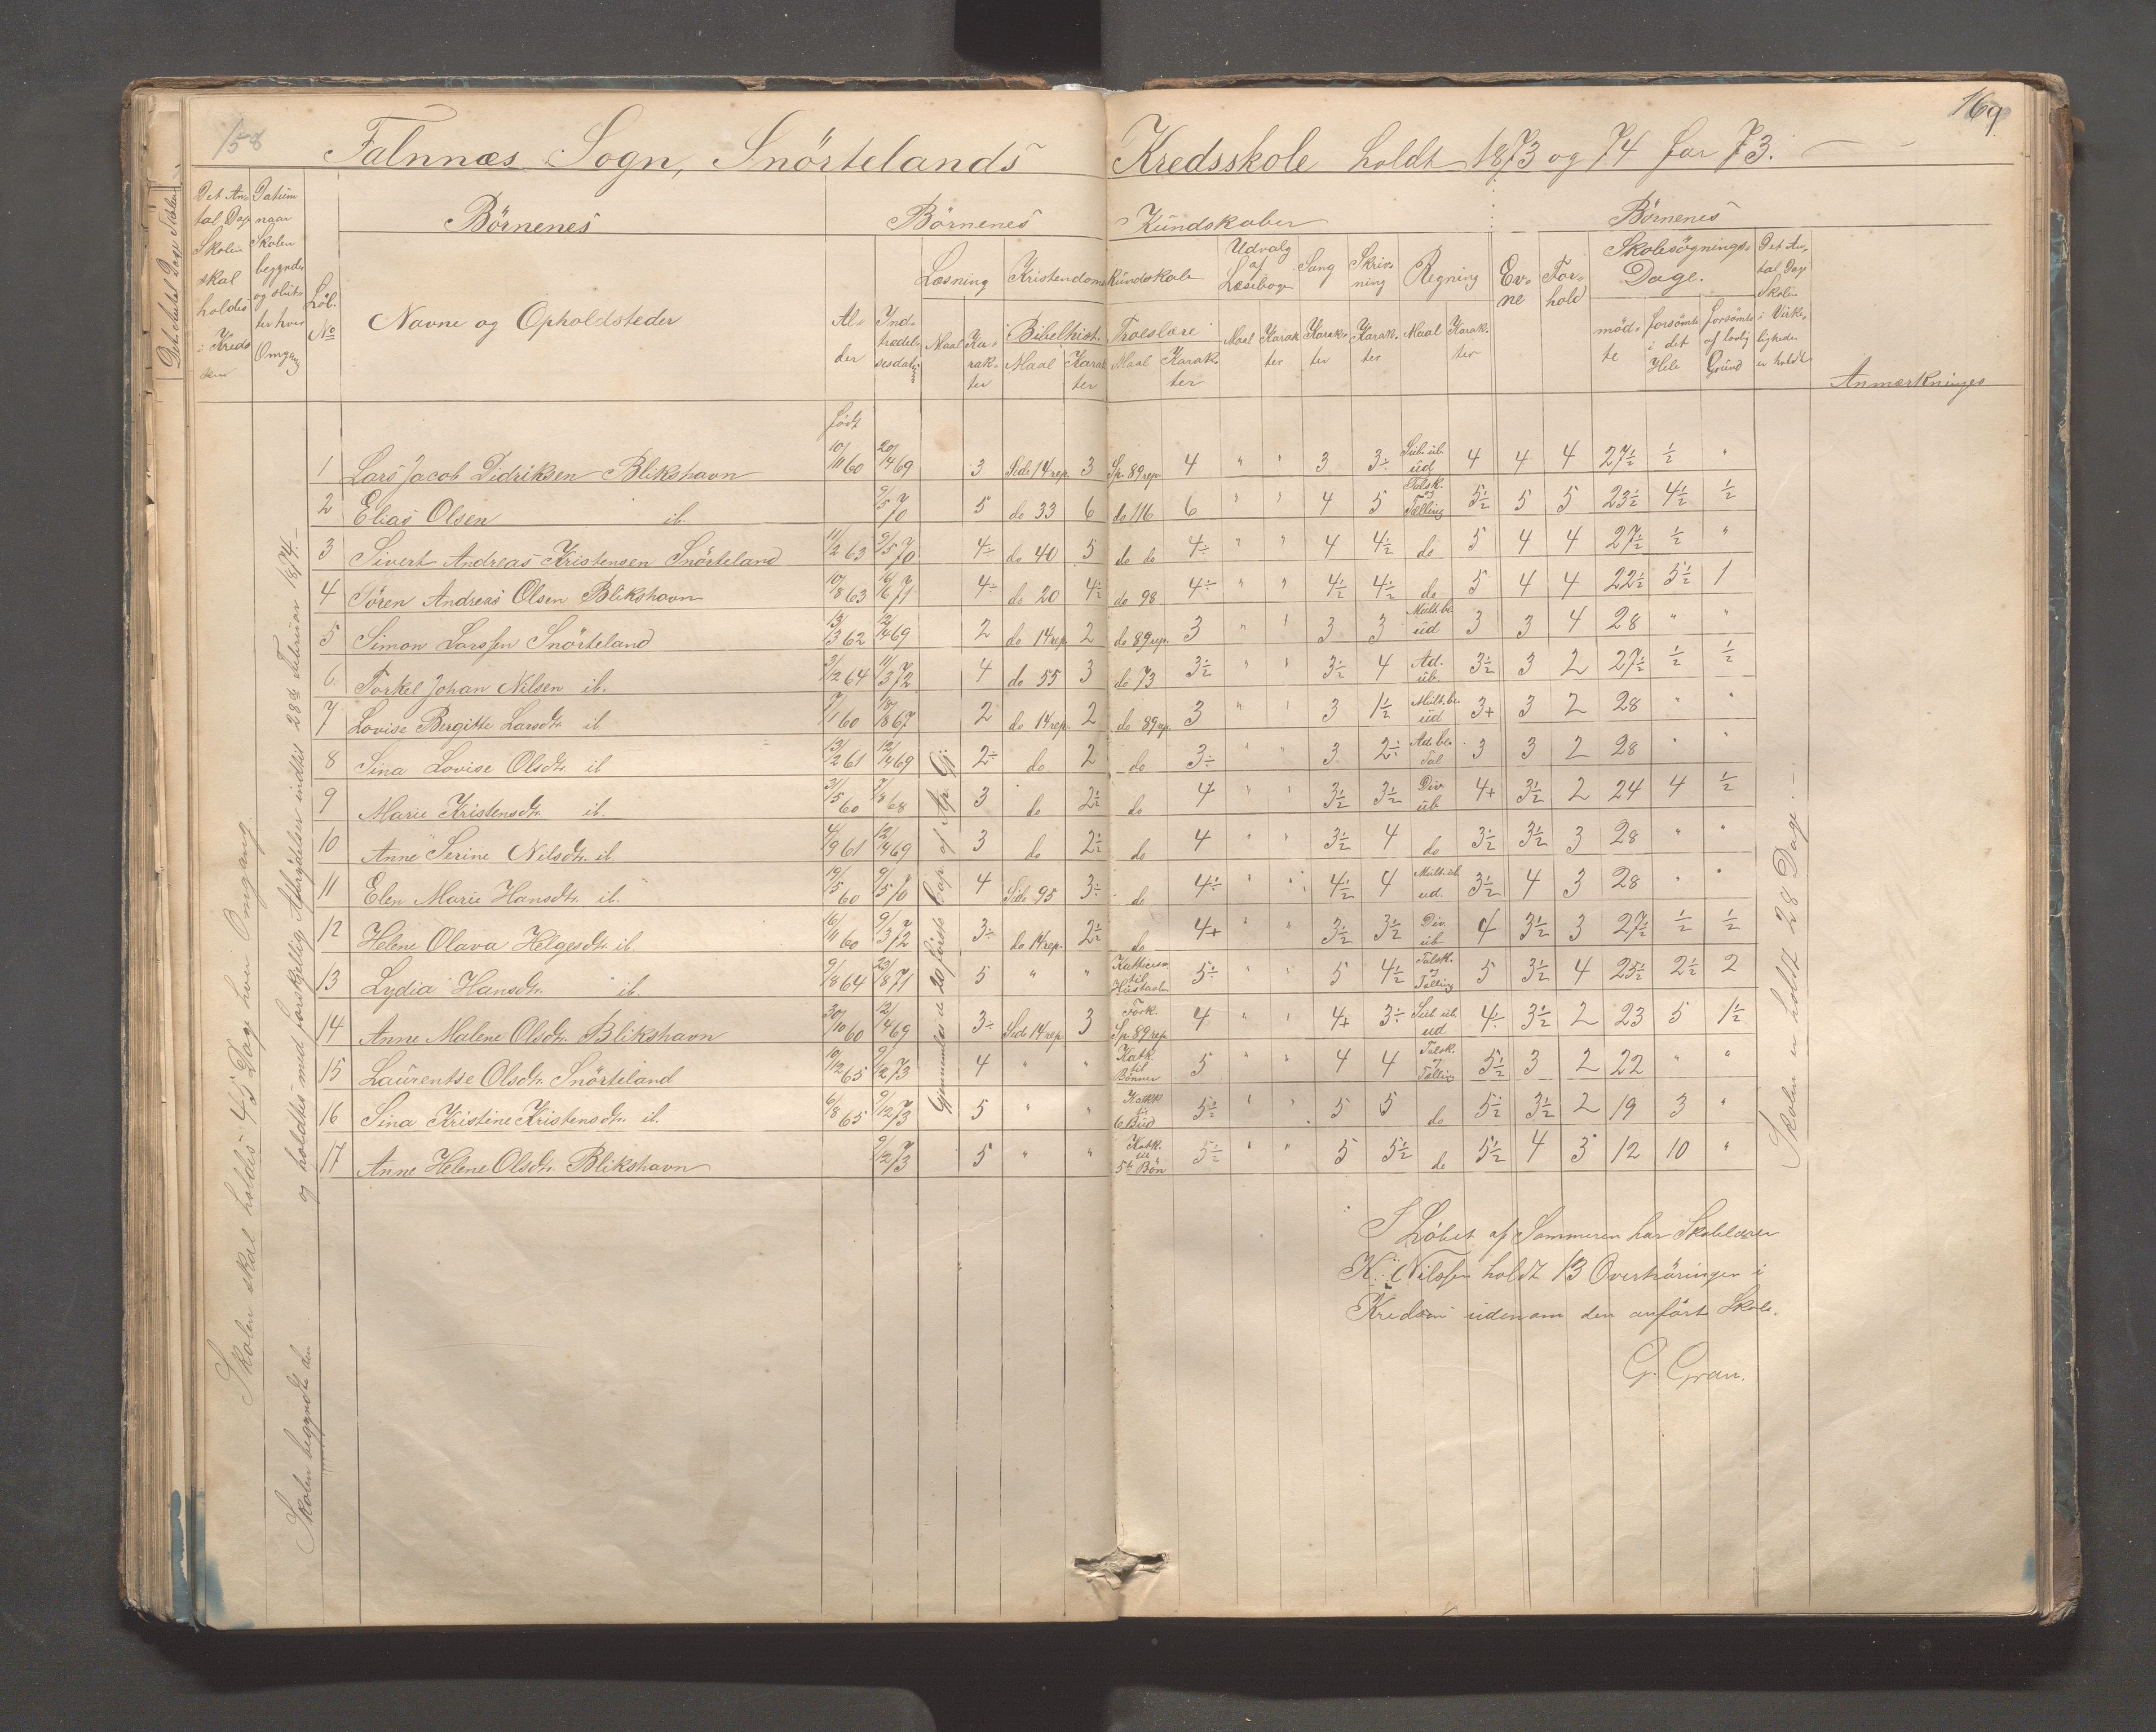 158
169
Falnnæs Sogn, Snörtelands Kredsskole holdt 1873 og 74 for 73.
Det Antal Dage Skolen skal holdes i Kredsen
Datum naar Skolen begynder og slutter hver Omgang
Löb. No
Börnenes
Navne og Opholdsteder
Börnenes Kundskaber
Börnenes
Alder
Indtrædelsesdatum
Læsning
Maal
Karakter
Kristendomskundskab
Bibelhist.
Maal
Karakter
Troeslære
Maal
Karakter
Udvalg af Læsebogen
Maal
Karakter
Sang
Karakter
Skrivning
Karakter
Regning
Maal
Karakter
Evne
Forhold
Skolesögnings-Dage.
mödte
forsömte i det Hele
forsömte af lovlig Grund
Det Antal Dage Skolen i Virkeligheden er holdt
Anmærkninger
født
1 Lars Jacob Didriksen Blikshavn 10/11 60 20/14 69 3 Side 14 rep. 3 Sp. 89 rep 4 " " 3 3÷ Sub. ub. ud 4 4 4 27½ ½ "
2 Elias Olsen ib. 9/5 70 5 do 33 6 do 116 6 " " 4 5 Talsk. og Tælling 5½ 5 5 23½ 4½ ½
3 Sivert Andreas Kristensen Snörteland 11/2 63 9/5 70 4÷ do 40 5 do do 4÷ " " 4 4½ do 5 4 4 27½ ½ "
4 Sören Andreas Olsen Blikshavn 10/8 63 16/6 71 4÷ do 20 4½ do 98 4÷ " " 4½ 4½ do 5 4 4 22½ 5½ 1
5 Simon Larssen Snörteland 13/3 62 12/14 69 2 do 14 rep. 2 do 89 rep. 3 " " 3 3 Mult. be. ud 3 3 4 28 " "
6 Torkel Johan Nilsen ib. 3/12 64 11/3 72 4 do 55 3 do 73 3½ " " 3½ 4 Ad. ub. 3½ 3 2 27½ ½ ½
7 Lovise Bergitte Larsdtr. ib. 7/1 60 18/8 67 2 do 14 rep. 2 do 89 rep. 3 " " 3 1½ Mult. be. ud 3+ 3 2 28 " "
8 Sina Lovise Olsdtr. ib 13/2 61 12/14 69 2÷ do 2 do 3÷ " " 3 2÷ Ad. be. Tal 3 3 2 28 " "
9 Marie Kristensdtr. ib. 31/5 60 7/8 68 3 do 2½ do 4 " " 3½ 3½ Div. ub. 4+ 3½ 2 24 4 ½
10 Anne Serine Nilsdtr. ib. 4/9 61 12/14 69 3 do 2½ do 4 " " 3½ 4 do 3½ 3½ 3 28 " "
11 Elen Marie Hansdtr. ib. 19/5 60 9/5 70 4 Side 95 3÷ do 4÷ " " 4½ 4 Mult. ub. ud. 3½ 4 3 28 " "
12 Helene Olava Helgesdtr. ib 16/11 60 9/3 72 3÷ do 14 rep. 2½ do 4+ " " 3½ 3½ Div. ub 4 3½ 3 27½ ½ ½
13 Lydia Hansdtr. ib. 9/8 64 23/8 71 5 " " 5÷ " " 5 4½ Talsk. og Tælling 5 3½ 4 25½ 2½ 2
14 Anne Malene Olsdtr. Blikshavn 30/10 60 12/14 69 3÷ Side 14 rep 3 Fork. Sp. 89 rep. 4 " " 4+ 3÷ Sub. ub. ud 4÷ 3½ 2 23 5 1½
15 Laurentse Olsdtr. Snörteland 10/12 65 9/12 73 4 " " Katk. til Bönner 5 " " 4 4 Talsk. og Tælling 5½ 3 2 22 " "
16 Sina Kristine Kristensdtr. ib. 6/8 65 9/12 73 5 " " Katk. til 6 Bud 5½ " " 5 5 do 5½ 3½ 2 19 3 "
17 Anne Helene Olsdtr. Blikshavn 9/12 73 5 " " Katk. til 5te Bön 5½ " " 5 5½ do 5½ 4 3 12 10 "
Skolen skal holdes 45 Dage hver Omgang
Skolen begyndte den
og holdtes med forskjellig Afbrydelser indtil 28de Februar 1874.
Gjennemläst de 20 förste Cap. af Ap. Gj.
Skolen er holdt 28 Dage.
I Löbet af Sommeren har Skolelærer
K. Nilssen holdt 13 Overhöringer i
Kredsen udenom den anfört Skole.
G. Gran.